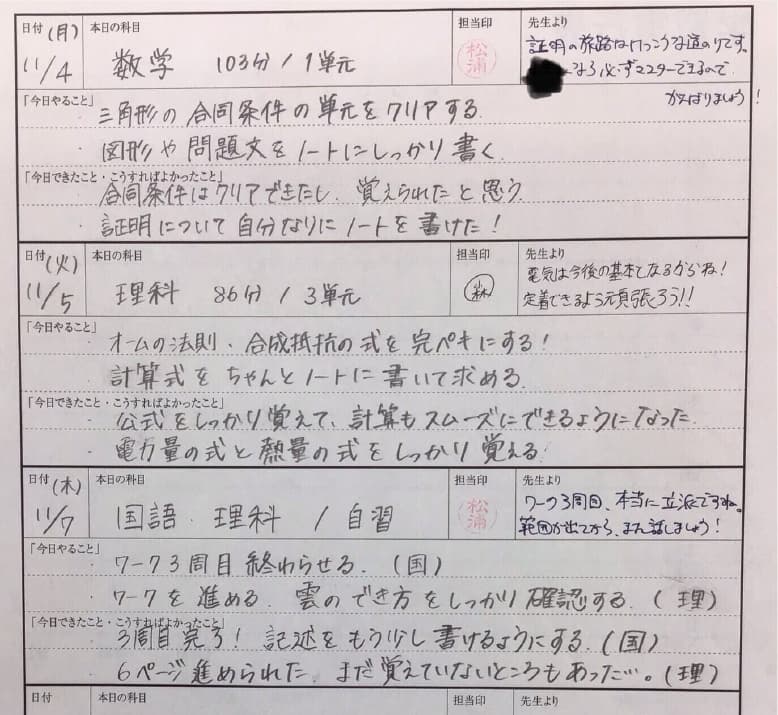 日付 (月) 本日の科目 担当印 先生より
11/4 数学 103分 / 1単元 松浦
証明の旅路はけっこうな道のりです。
なら必ずマスターできるので
がんばりましょう!
「今日やること」
・三角形の合同条件の単元をクリアする
・図形や問題文をノートにしっかり書く
「今日できたこと・こうすればよかったこと」
・合同条件はクリアできたし、覚えられたと思う
・証明について自分なりにノートを書けた!
日付 (火) 本日の科目 担当印 先生より
11/5 理科 86分 / 3単元 森
電気は今後の基本となるからね!
定着できるよう頑張ろう!!
「今日やること」
・オームの法則・合成抵抗の式を完ペキにする!
・計算式をちゃんとノートに書いて求める
「今日できたこと・こうすればよかったこと」
・公式をしっかり覚えて、計算もスムーズにできるようになった
・電力量の式と熱量の式をしっかり覚える
日付 (木) 本日の科目 担当印 先生より
11/7 国語・理科 / 自習 松浦
ワーク3周目、本当に立派ですね。
範囲が出てから、また話しましょう!
「今日やること」
・ワーク3周目終わらせる。(国)
・ワークを進める 雲のでき方をしっかり確認する。(理)
「今日できたこと・こうすればよかったこと」
・3周目完了! 記述をもう少し書けるようにする。(国)
・6ページ進められた。まだ覚えていないところもあった…。(理)
日付 本日の科目 担当印 先生より